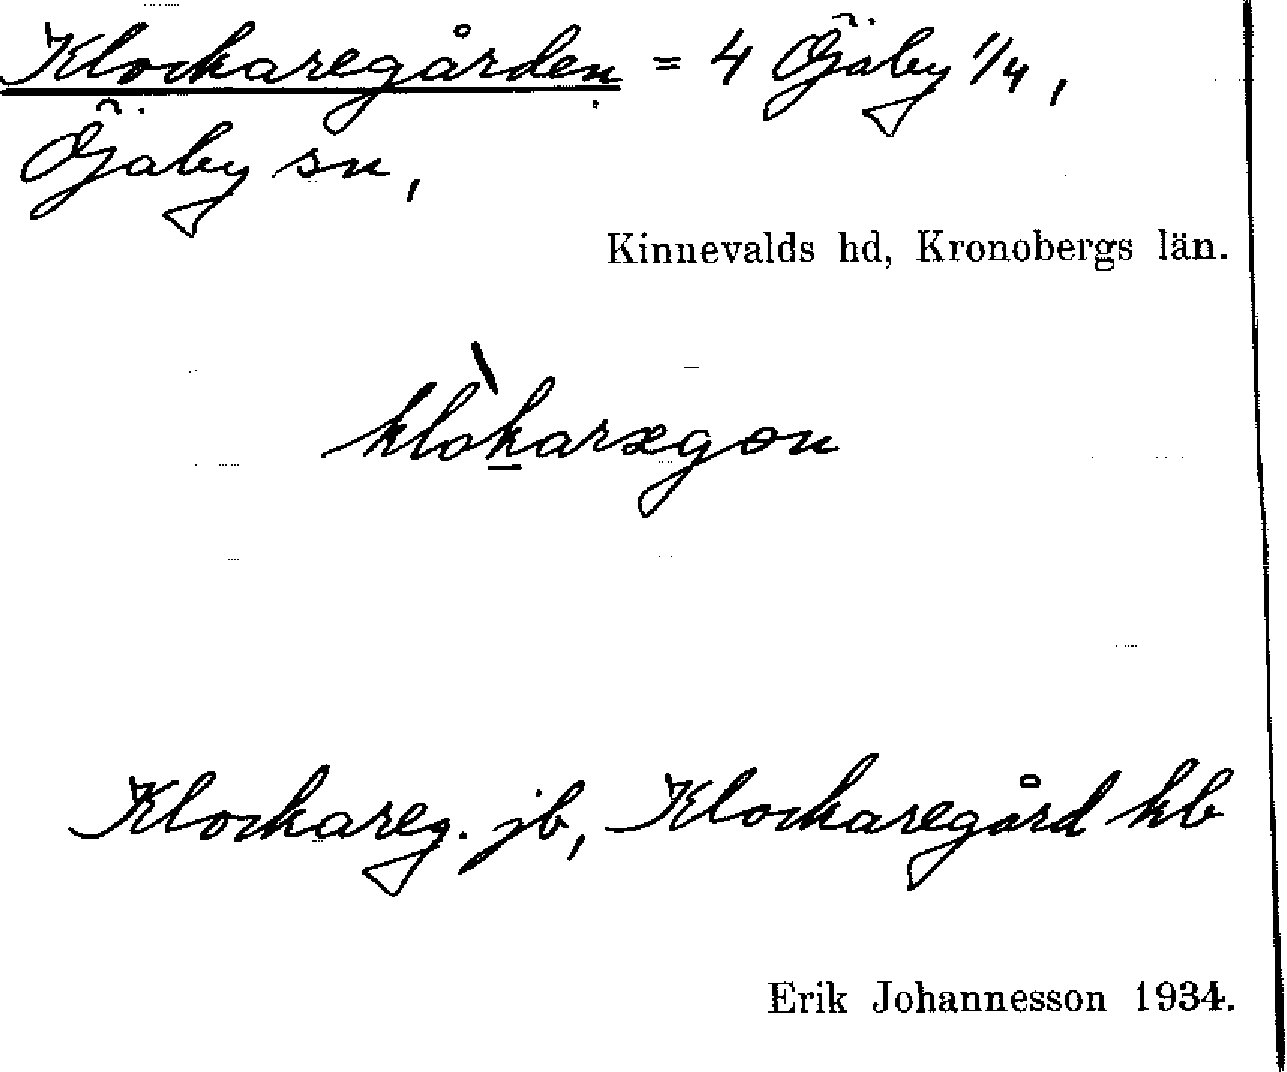 Klockaregården = 4 Öjaby 1/4,
Öjaby sn,
Kinnevalds hd, Kronobergs län.
klòkarægon
Klockareg. jb, Klockaregård kb
Erik Johannesson 1934.